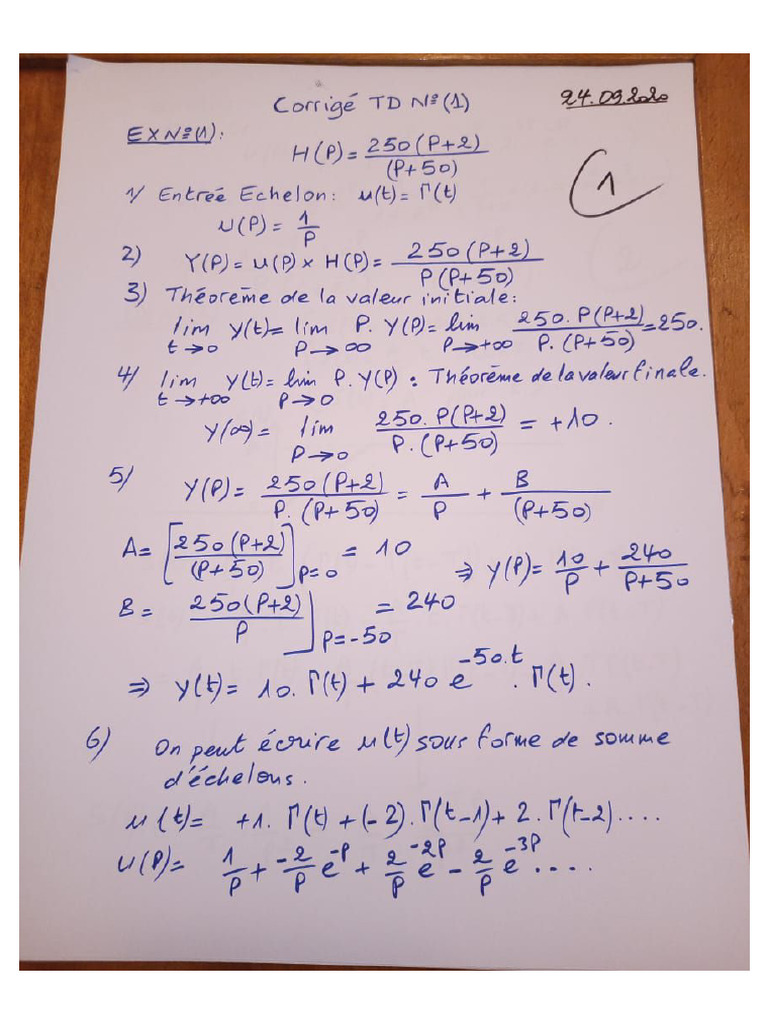 Corrigé TD N°(1)
24.09.2020
EX N°(1):
H(P) = 250(P+2) / (P+50)
1
1/ Entrée Echelon: u(t) = Γ(t)
U(P) = 1/P
2) Y(P) = U(P) × H(P) = 250(P+2) / P(P+50)
3) Théorème de la valeur initiale:
lim t→0 y(t) = lim P→∞ P.Y(P) = lim P→+∞ 250.P(P+2) / P.(P+50) = 250.
4/ lim t→+∞ y(t) = lim P→0 P.Y(P) : Théorème de la valeur finale.
y(∞) = lim P→0 250.P(P+2) / P.(P+50) = +10.
5/ Y(P) = 250(P+2) / P.(P+50) = A/P + B/(P+50)
A = [250(P+2) / (P+50)]P=0 = 10
⇒ Y(P) = 10/P + 240/P+50
B = 250(P+2) / P ]P=-50 = 240
⇒ y(t) = 10.Γ(t) + 240 e^-50.t . Γ(t).
6) On peut écrire u(t) sous forme de somme
d'échelons.
u(t) = +1.Γ(t) + (-2).Γ(t-1) + 2.Γ(t-2)....
U(P) = 1/P + -2/P e^-P + 2/P e^-2P - 2/P e^-3P ....